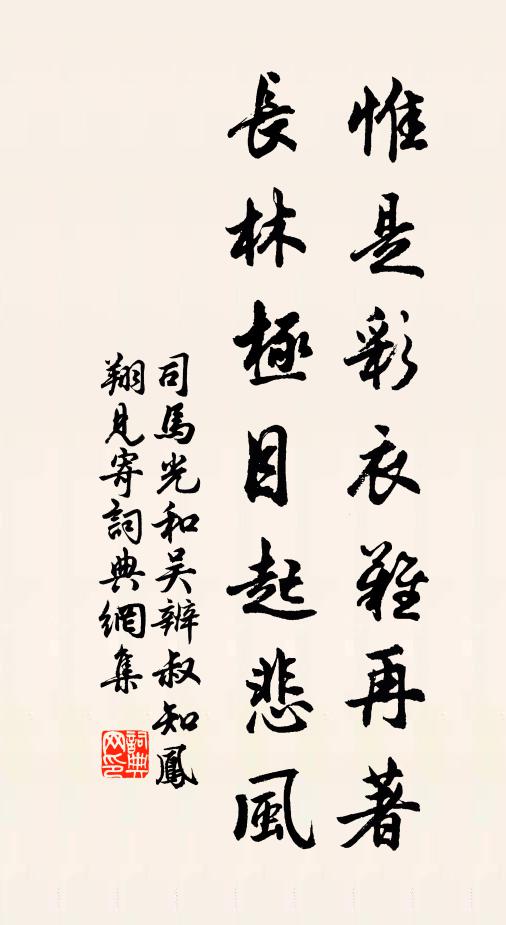 惟是彩衣難再著
長林極目起悲風
司馬光和吴辨叔知鳳
翔見寄詞典網集
詞典网印